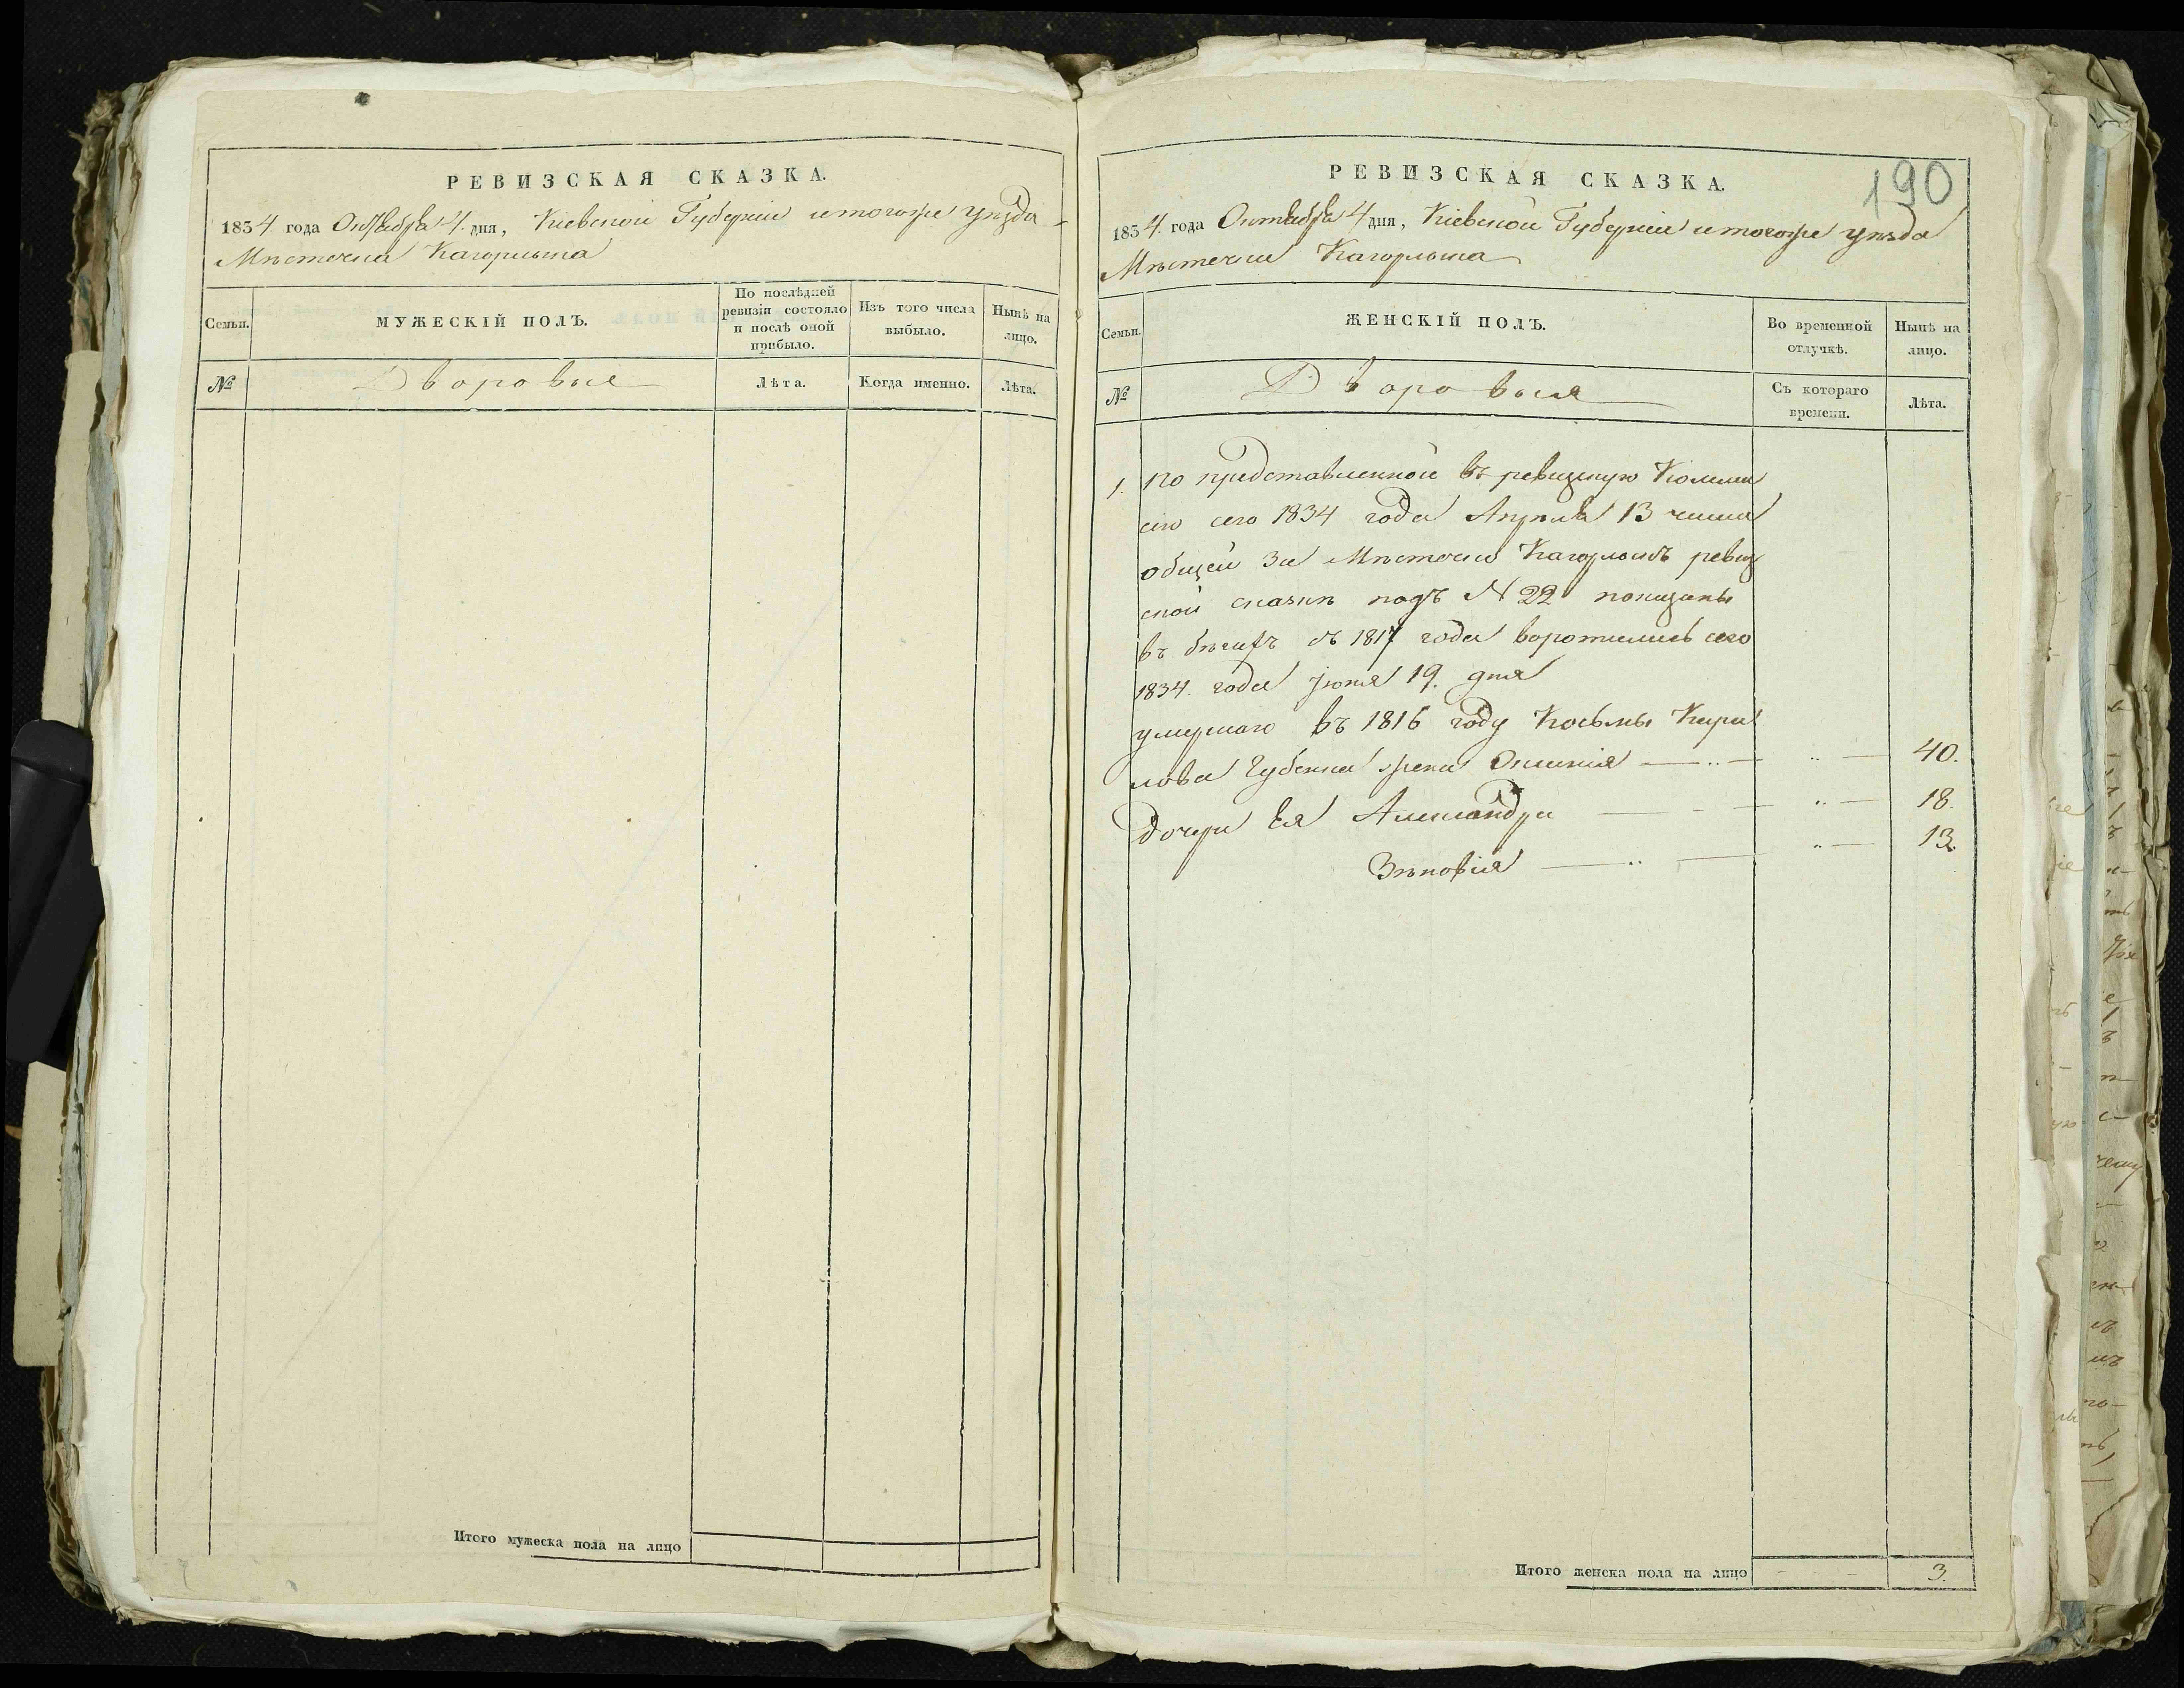 РЕВИЗСКАЯ СКАЗКА.
1834 года Октября 4 дня, Кіевской Губерніи итогоже уѣзда
Мѣстечка Кагорлыка
Семьи.
МУЖЕСКІЙ ПОЛЪ.
По послѣдней
ревизіи состояло
и послѣ оной
прибыло.
Изъ того числа
выбыло.
Нынѣ на
лицо.
№
Дворовые
Лѣта.
Когда именно.
Лѣта.
Итого мужеска пола на лицо
190
РЕВИЗСКАЯ СКАЗКА.
1834 года Октября 4 дня, Кіевской Губерніи итогоже уѣзда
Мѣстечка Кагорлыка
Семьи.
ЖЕНСКІЙ ПОЛЪ.
Во временной
отлучкѣ.
Нынѣ на
лицо.
№
Дворовыя
Съ котораго
времени.
Лѣта.
1. по представленной въ ревизскую Коммі
сію сего 1834 года Апрѣля 13 числа
общей за Мѣстечко Кагорлыкъ ревиз
ской сказкѣ подъ N 22 показаны
въ бѣгахъ съ 1817 года воротились сего
1834. года Іюня 19. дня
умершаго въ 1816 году Косьмы Кири
лова Губенка жена 40.
дочери Ея Александра 18.
Зѣновія 13.
Итого женска пола на лицо 3.